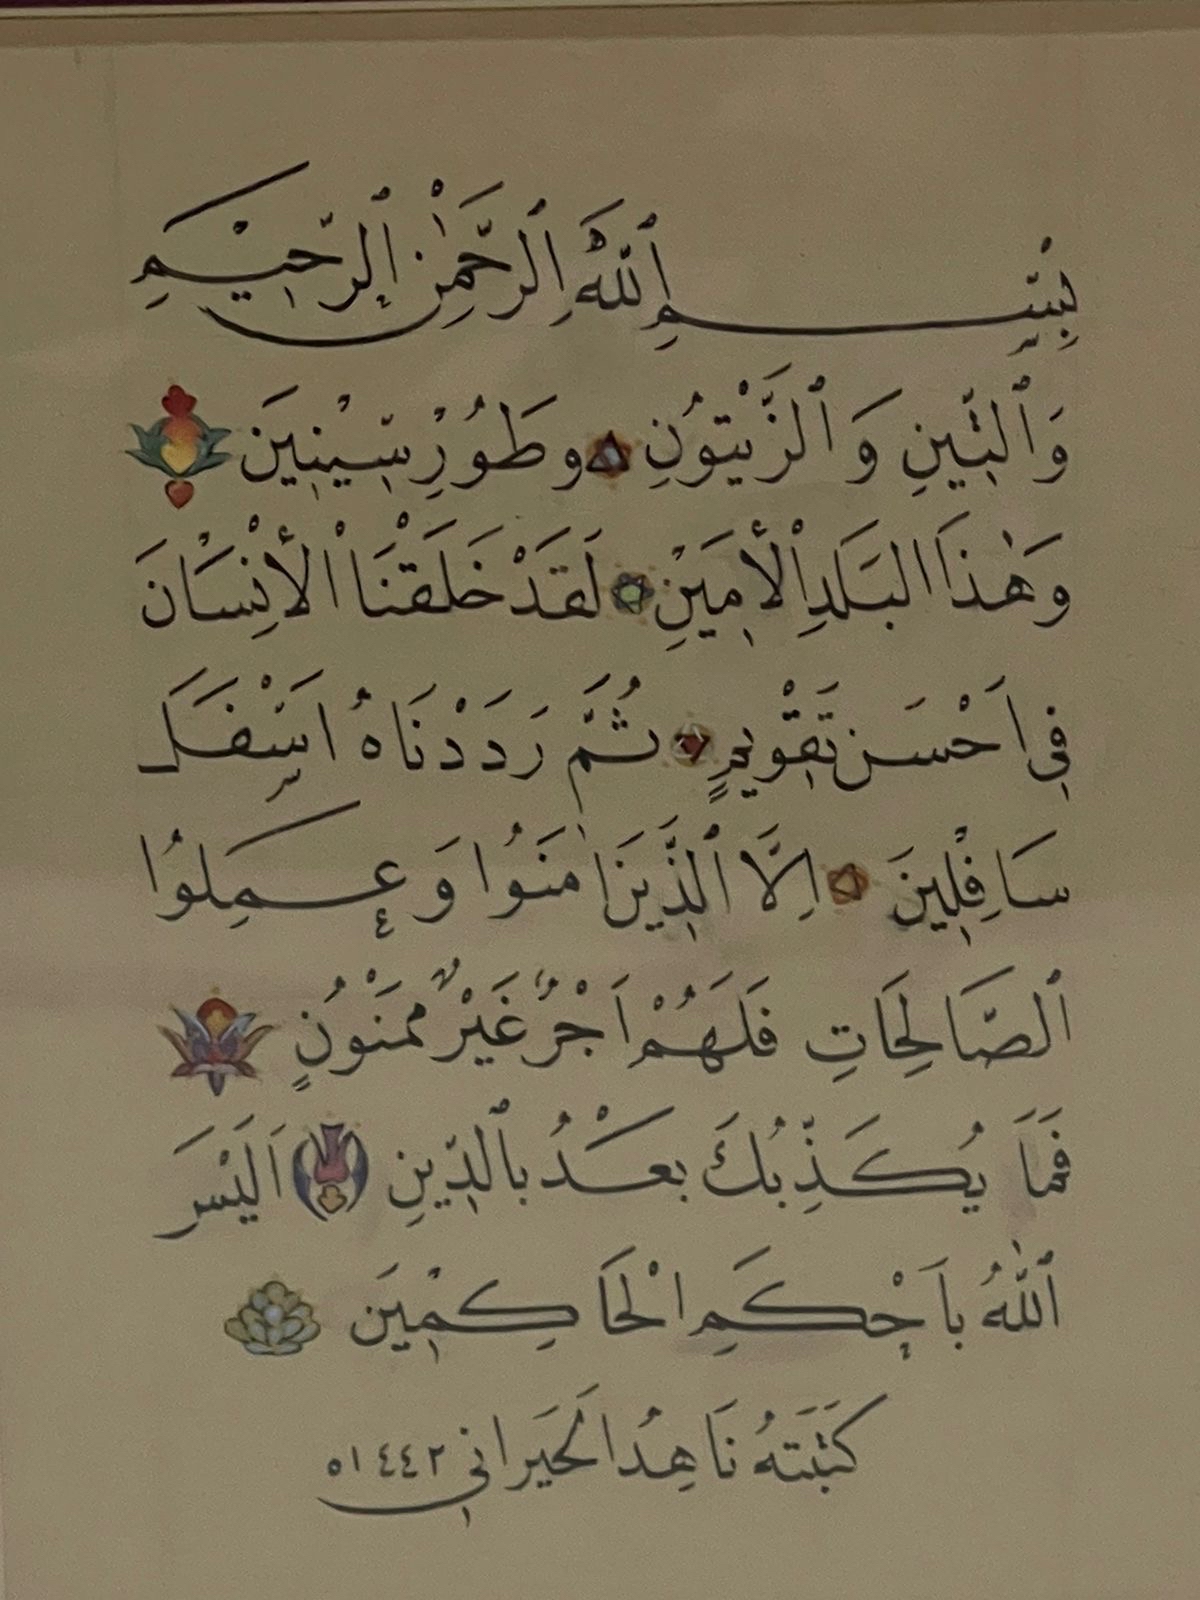 بِسْمِ ٱللَّهِ ٱلرَّحْمَٰنِ ٱلرَّحِيْمِ
وَٱلتِّينِ وَٱلزَّيْتُونِ وطَُورِ سِّيْنِينَ
وَهَٰذَا البَلَدِ ٱلأَمِيَنِ لَقَدْ خَلَقْنَا ٱلأَنْسَانَ
فِي اَحْسَن تَقْوِيمٍ ثُمَّ رَدَدْنَاهُ اَسْفَلَ
سَافِلِينَ اِلَّا ٱلَّذِيَنَ اٰمَنَُوا وَ عَمِلوُا
ٱلصَّالِحَاتِ فَلَهُمْ اَجْرٌ غَيْرٌ مَمْنُونٍ
فَمَا يُكَذِّبُكَ بعَْدُ بالدِّينِ اَلَيْسَرَ
ٱللّٰهُ باَحْكَمِ الْحَاكِمِيَن
كَتَبَتهُ نَاهِدُ الحَيَراني ١٤٤٢ه